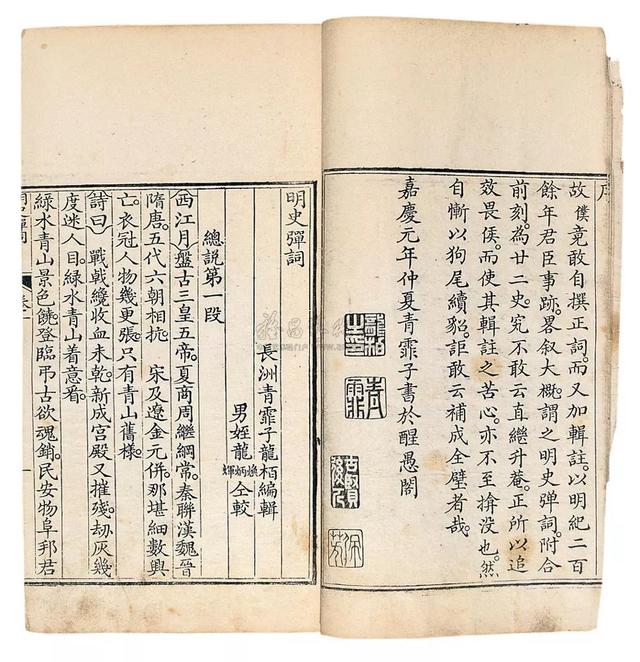 序
故僕竟敢自撰正詞。而又加輯註。以明紀二百
餘年君臣事跡。畧敘大概。謂之明史彈詞。附合
前刻。為廿二史。究不敢云直繼升菴。正所以追
效畏侯。而使其輯註之苦心。亦不至揜没也。然
自慚以狗尾續貂。詎敢云補成全璧者哉
嘉慶元年仲夏青霏子書於醒愚閣
明史彈詞
長洲青霏子龍栢編輯
男姪龍煥炳輝仝較
總說第一段
西江月盤古三皇五帝。夏商周繼綱常。秦聯漢魏晉
隋唐。五代六朝相抗　宋及遼金元併。那堪細數興
亡。衣冠人物幾更張。只有青山舊樣。
詩曰　戰戟纔收血未乾。新成宮殿又摧殘。劫灰幾
度迷人目。綠水青山着意看。
綠水青山景色饒。登臨弔古欲魂銷。民安物阜邦君